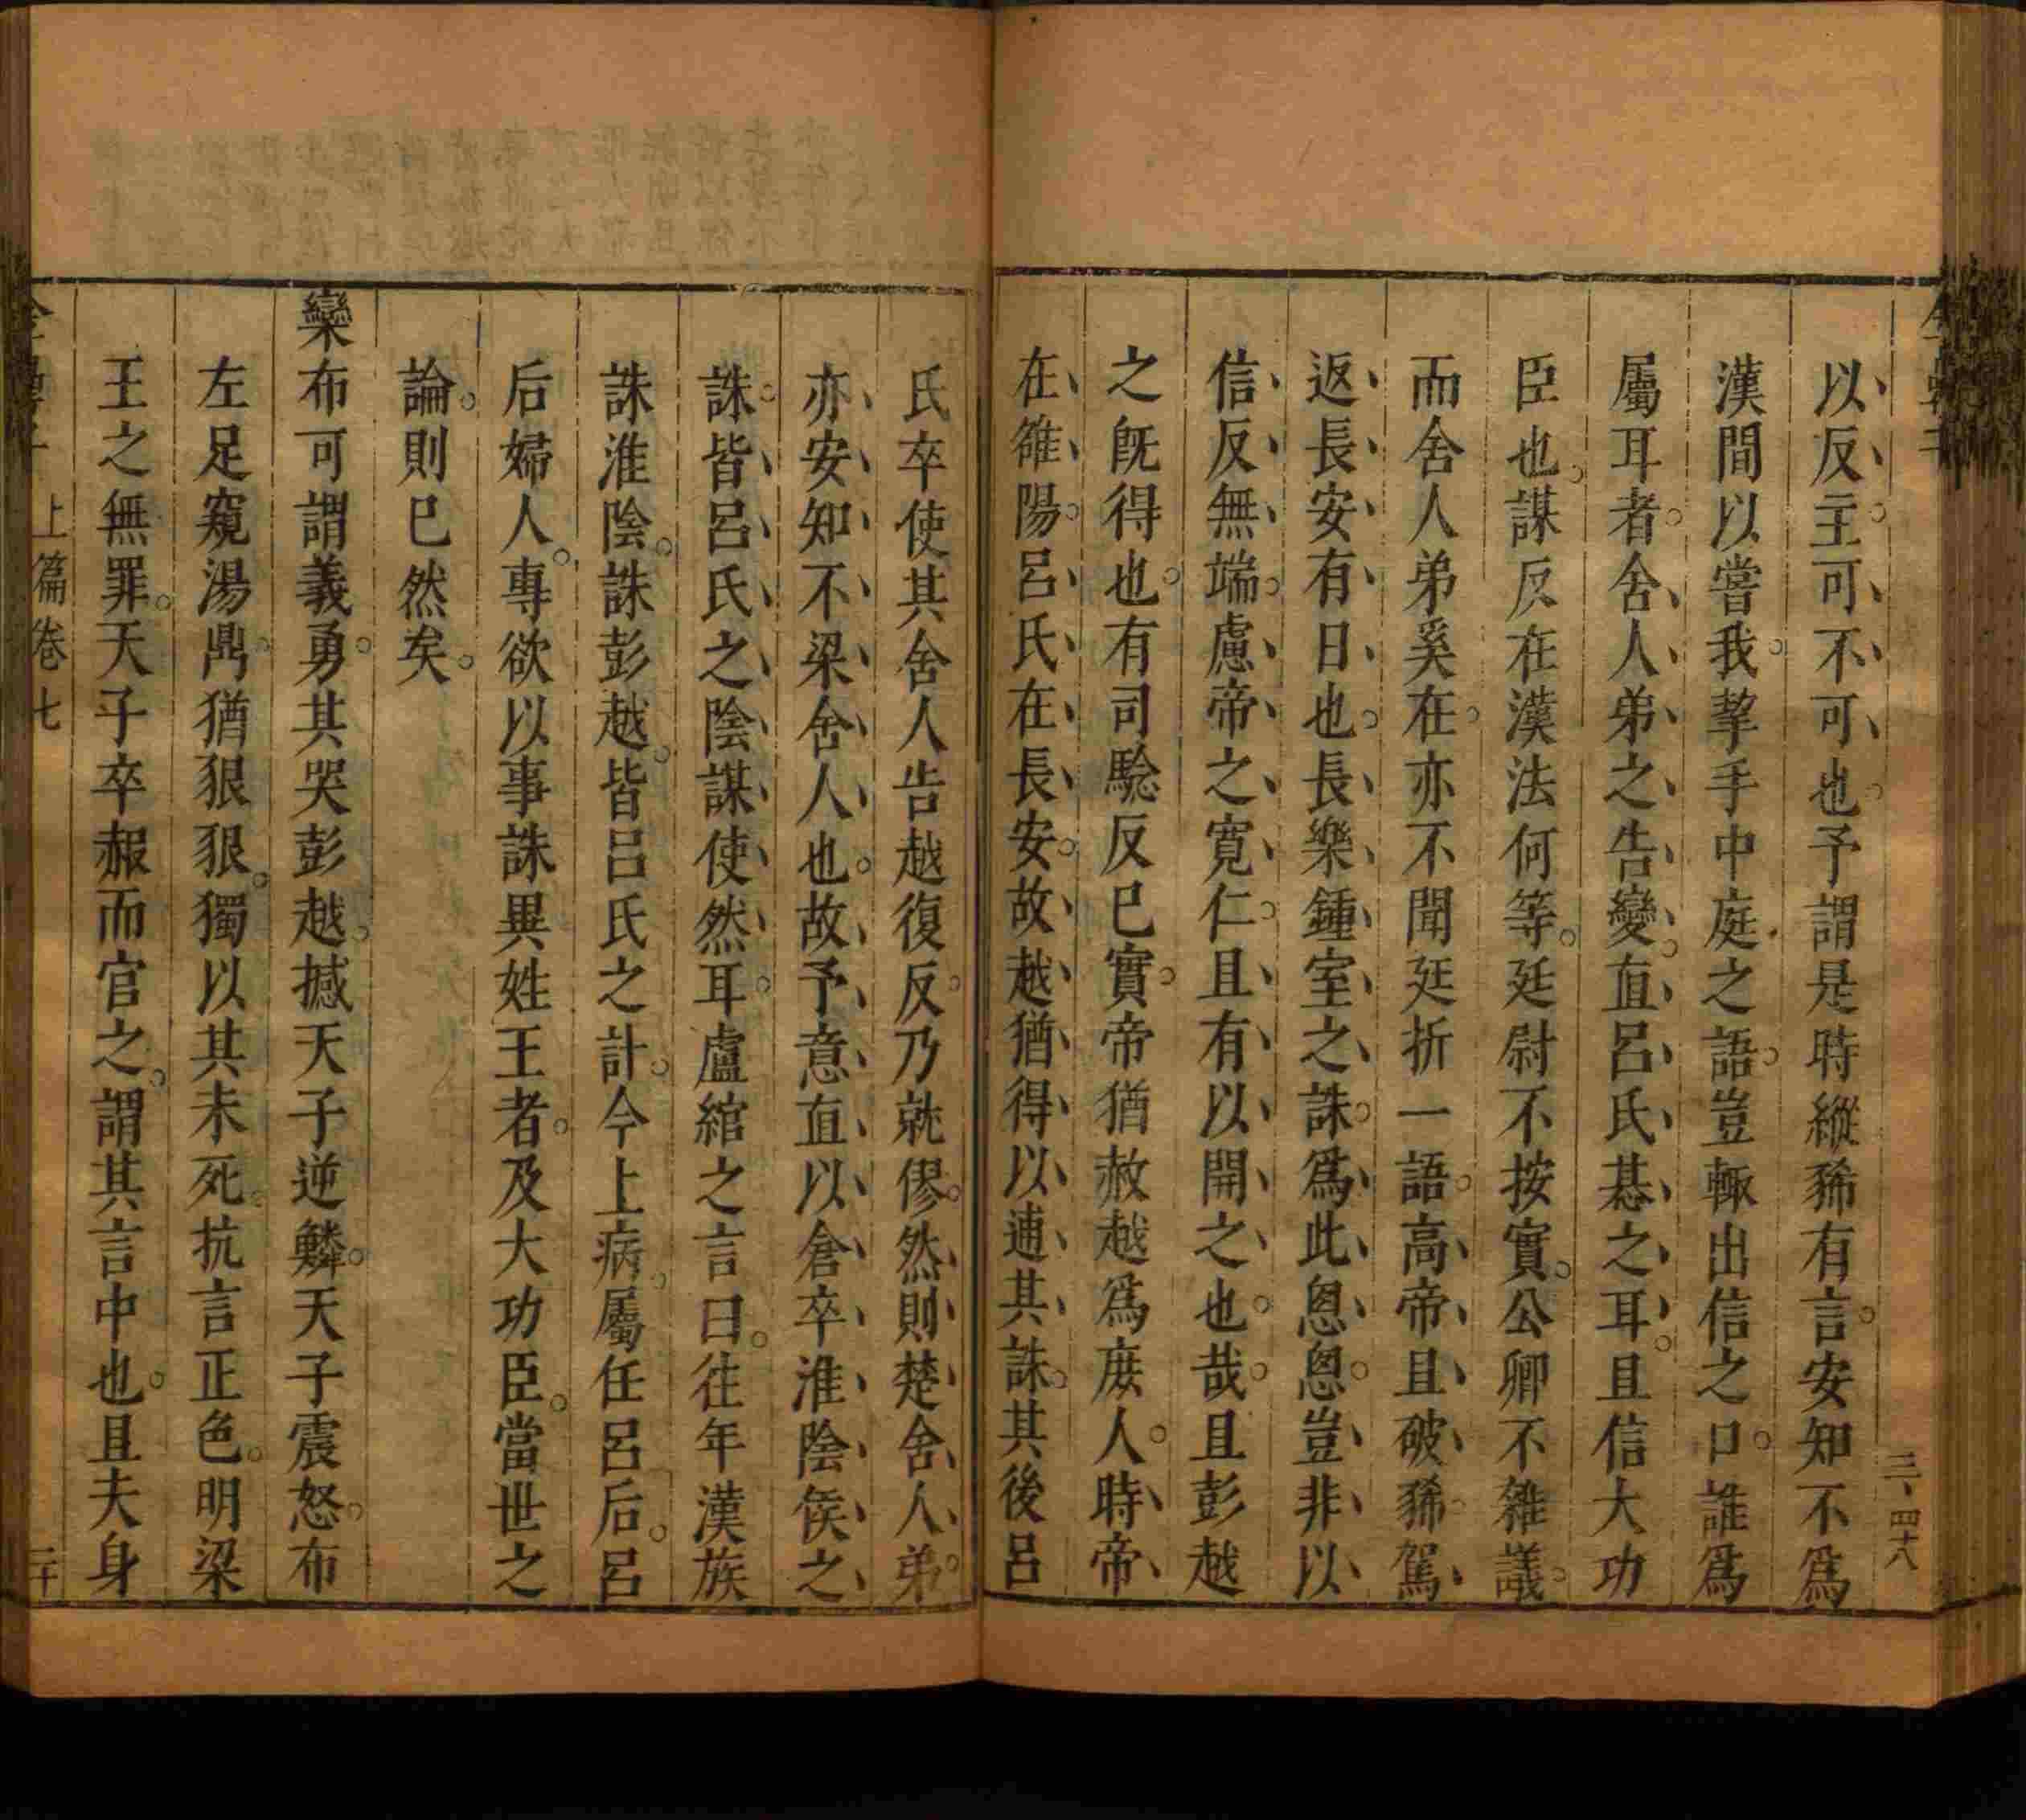 三、四十八
以反主可不可也予謂是時縱豨有言安知不爲
漢間以嘗我挈手中庭之語豈輙出信之口誰爲
屬耳者舍人弟之告變直呂氏惎之耳且信大功
臣也謀反在漢法何等廷尉不按實公卿不雜議
而舍人弟奚在亦不聞廷折一語高帝且破豨駕
返長安有日也長樂鍾室之誅爲此悤悤豈非以
信反無端慮帝之寬仁且有以開之也哉且彭越
之旣得也有司騐反已實帝猶赦越爲庻人時帝
在雒陽呂氏在長安故越猶得以逋其誅其後呂
氏卒使其舍人告越復反乃就僇然則楚舍人弟
亦安知不梁舍人也故予意直以倉卒淮陰侯之
誅皆呂氏之陰謀使然耳盧綰之言曰往年漢族
誅淮陰誅彭越皆呂氏之計今上病屬任呂后呂
后婦人專欲以事誅異姓王者及大功臣當世之
論則已然矣
欒布可謂義勇其哭彭越撼天子逆鱗天子震怒布
左足窺湯鼎猶狠狠獨以其未死抗言正色明梁
王之無罪天子卒赧而官之謂其言中也且夫身
上篇卷七
二十